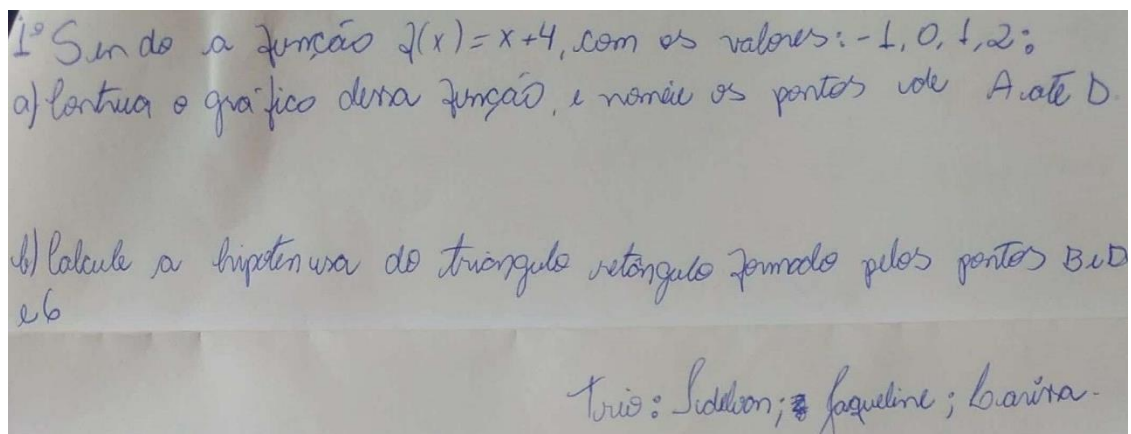 1º Sendo a função f(x)=x+4, com os valores: -1, 0, 1, 2:
a) Contrua o gráfico dessa função, e nomeie os pontos de A até D.
b) Calcule a hipotenusa do triângulo retângulo formado pelos pontos B e D
e 6
Trio: ; Jaqueline; Larissa.